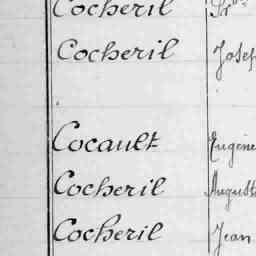 Cocheril
Cocheril Joseph
Cocault Eugène
Cocheril August
Cocheril Jean